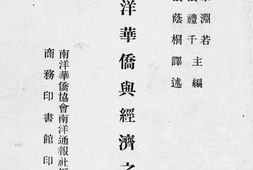 淵若
禮千 主編
蔭桐譯述
洋華僑與經濟之
南洋華僑協會南洋通報社
商務印書館印